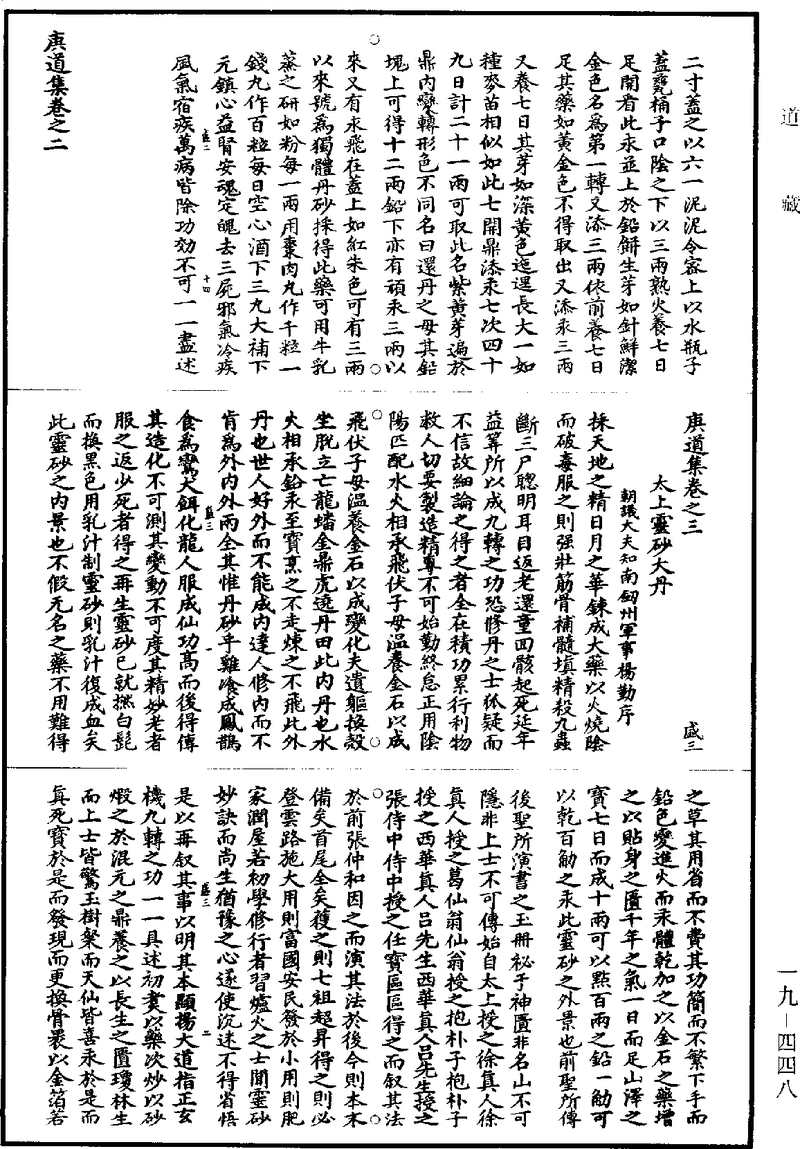 道藏
二寸蓋之以六一泥泥令密上以水瓶子
蓋甕桶子口陰之下以三兩熟火養七日
足開看此汞並上於鉛餅生芽如針鮮潔
金色名爲第一轉又添三兩依前養七日
足其藥如黃金色不得取出又添汞三兩
又養七日其芽如深黃色迤邐長大一如
種麥苗相似如此七開鼎添汞七次四十
九日計二十一兩可取此名紫黃芽遍於
鼎內變轉形色不同名曰還丹之母其鉛
塊上可得十二兩鉛下亦有頑汞三兩以
來又有汞飛在蓋上如紅朱色可有三兩
以來號爲獨體丹砂採得此藥可用牛乳
蒸之研如粉每一兩用棗肉丸作千粒一
錢九作百粒每日空心酒下三九大補下
元鎮心益腎安魂定魄去三尸邪氣冷疾
風氣宿疾萬病皆除功効不可一一盡述
庚道集卷之二
庚道集卷之三
盛三
太上靈砂大丹
朝議大夫知南劍州軍事楊勤序
採天地之精日月之華鍊成大藥以火燒陰
而破毒服之則强壯筋骨補髓塡精殺九蟲
斷三尸聰明耳目返老還童四骸起死延年
益筭所以成九轉之功恐修丹之士狐疑而
不信故細論之得之者全在積功累行利物
救人切要製造精專不可始勤終怠正用陰
陽匹配水火相承飛伏子母溫養金石以成
飛伏子母溫養金石以成變化夫遺軀換殼
坐脫立亡龍蟠金鼎虎遶丹田此內丹也水
火相承鉛汞至寶烹之不走煉之不飛此外
丹也世人好外而不能成內達人修內而不
肯爲外內外兩全其惟丹砂乎雞飡成鳳鵲
食爲鸞犬餌化龍人服成仙功高而後得傳
其造化不可測其變動不可度其精妙老者
服之返少死者得之再生靈砂已就撚白髭
而換黑色用乳汁制靈砂則乳汁復成血矣
此靈砂之內景也不假无名之藥不用難得
之草其用省而不費其功簡而不繁下手而
鉛色變進火而汞體乾加之以金石之藥增
之以貼身之匱千年之氣一日而足山澤之
寶七日而成十兩可以點百兩之鉛一觔可
以乾百觔之汞此靈砂之外景也前聖所傳
後聖所演書之玉冊祕于神匱非名山不可
隱非上士不可傳始自太上授之徐眞人徐
眞人授之葛仙翁仙翁授之抱朴子抱朴子
授之西華眞人呂先生西華眞人呂先生授之
張侍中侍中授之任寶區區得之而叙其法
於前張仲和因之而演其法於後今則本末
備矣首尾全矣獲之則七祖超昇得之則必
登雲路施大用則富國安民發於小用則肥
家潤屋若初學修行者習爐火之士聞靈砂
妙訣而尚生猶豫之心遂使沉迷不得省悟
是以再叙其事以明其本顯揚大道指正玄
機九轉之功一一具述初煑以藥次炒以砂
煆之於混元之鼎養之以長生之匱瓊林生
而上士皆驚玉樹粲而天仙皆喜汞於是而
眞死寶於是而發現而更換骨裹以金箔若
一九－四四八